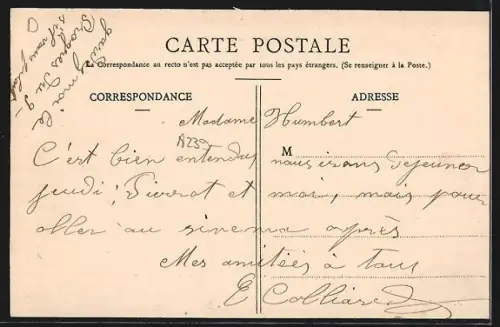 CARTE POSTALE
La Correspondance au recto n'est pas acceptée par tous les pays étrangers. (Se renseigner à la Poste.)
CORRESPONDANCE
ADRESSE
Madame Humbert
A239
M
C'est bien entendu, nous irons déjeuner
jeudi, Pierrot et moi, mais pour
aller au sinema après
Mes amitiés à tous
E Colliard
gardez moi le
Progrès du 9
s'il vous plait